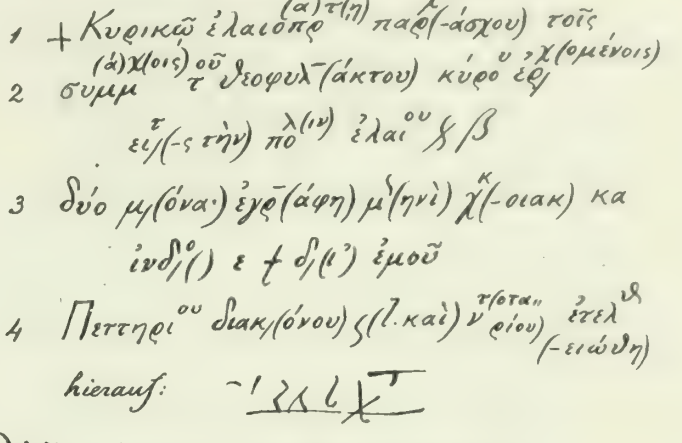 1 + Κυρικῶ ἐλαιοπρ(α)τ(η) παρ(-άσχου) τοῖς
2 συμμ(ά)χ(οις) οῦ τ θεοφυλ(άκτου) κύρου ἐρχ(ομένοις)
εἰ(-ς τὴν) πολ(ιν) ἐλαιου β
3 δύο μ(όνα·) ἐγρ(άφη) μ(ηνὶ) χ(-οιακ) κα
ἰνδ() ε δ(ι') ἐμοῦ
4 Πεττηριου διακ(όνου) ς (l. καὶ) νοτ(αρίου) ἐτελ(-ειώθη)
hierauf: